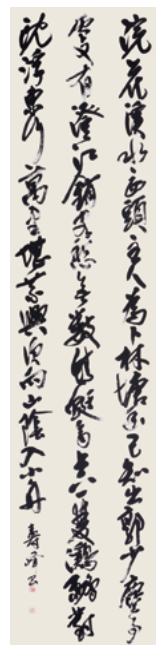 浣花溪水西頭主人為卜林塘幽已知出郭少塵事
更有澄江銷客愁無數蜻蜓齊上下一雙鸂鶒對
沈浮東行萬里堪乘興須向山陰入小舟